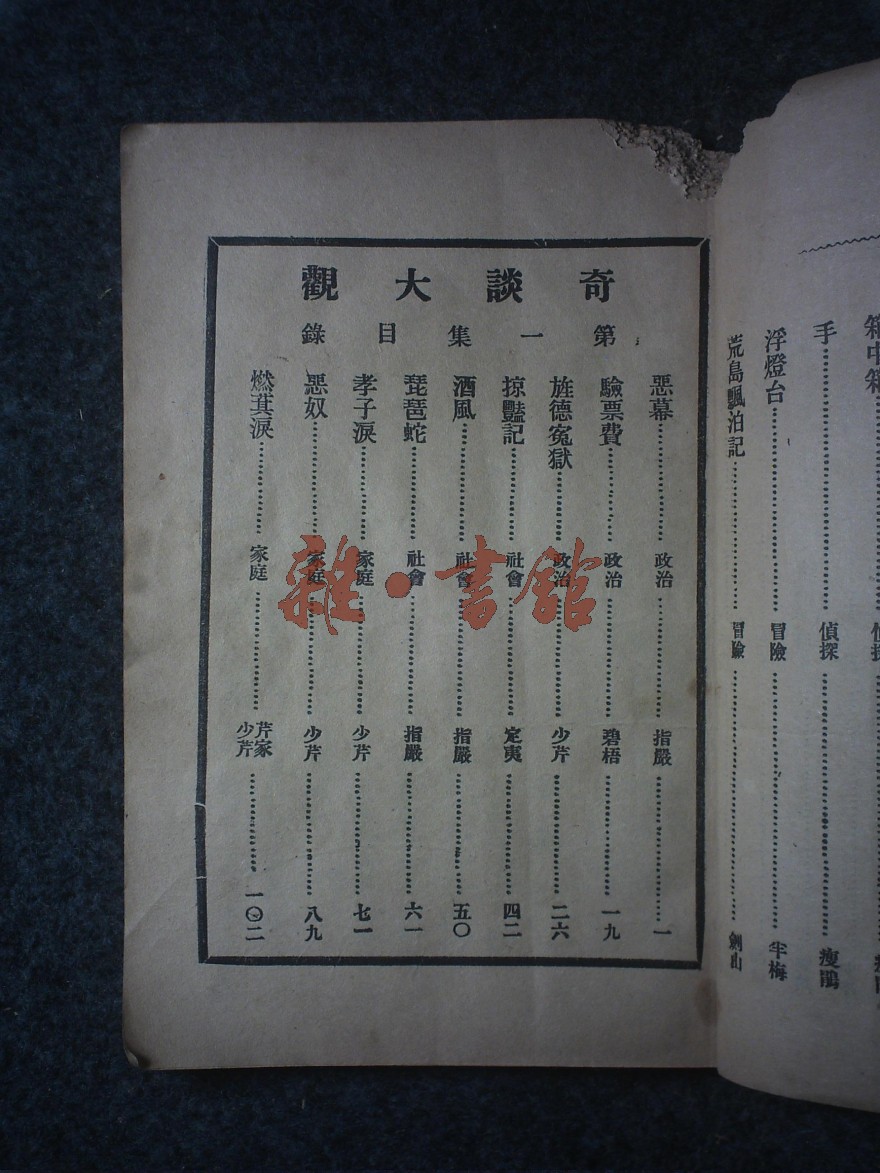 奇談大觀
第一集目錄
惡幕 政治 指嚴 一
驗票費 政治 碧梧 一九
旌德冤獄 政治 少芹 二六
掠豔記 社會 定夷 四二
酒風 社會 指嚴 五〇
琵琶蛇 社會 指嚴 六一
孝子淚 家庭 少芹 七一
惡奴 家庭 少芹 八九
燃萁淚 家庭 芹家少芹 一〇二
箱中箱 偵探
手 偵探 瘦鵑
浮燈台 冒險 半梅
荒島飄泊記 冒險 劍山
雜·書館